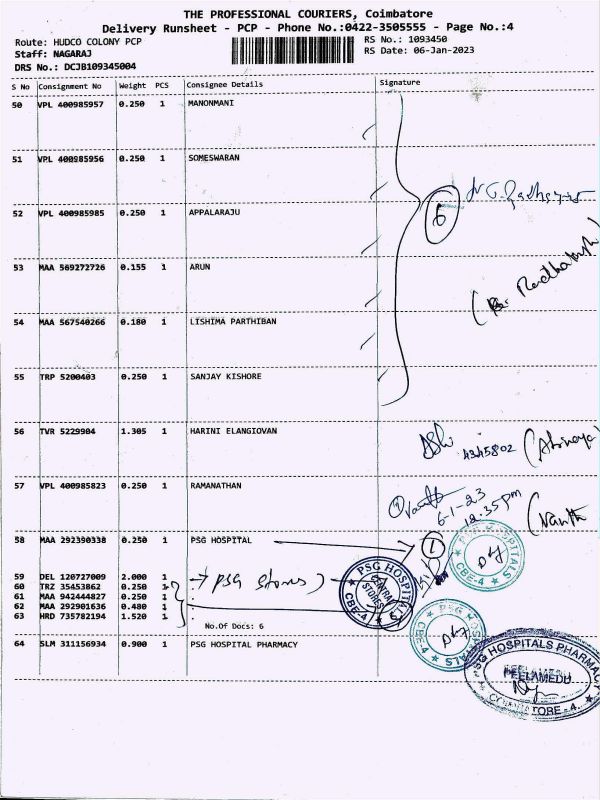 THE PROFESSIONAL COURIERS, Coimbatore
Delivery Runsheet - PCP - Phone No.:0422-3505555 - Page No.:4
Route: HUDCO COLONY PCP
RS No.: 1093450
Staff: NAGARAJ
RS Date: 06-Jan-2023
DRS No.: DCJB109345004
S No Consignment No Weight PCS Consignee Details Signature
50 VPL 400985957 0.250 1 MANONMANI
51 VPL 400985956 0.250 1 SOMESWARAN
52 VPL 400985985 0.250 1 APPALARAJU
6
53 MAA 569272726 0.155 1 ARUN
54 MAA 567540266 0.180 1 LISHIMA PARTHIBAN
55 TRP 5200403 0.250 1 SANJAY KISHORE
56 TVR 5229904 1.305 1 HARINI ELANGIOVAN
57 VPL 400985823 0.250 1 RAMANATHAN
6-1-23
12.35pm
58 MAA 292390338 0.250 1 PSG HOSPITAL
1
59 DEL 120727009 2.000 1 PSG Stores
60 TRZ 35453862 0.250 1
61 MAA 942444827 0.250 1
62 MAA 292901636 0.480 1
63 HRD 735782194 1.520 1
No.Of Docs: 6
PSG HOSPITALS CENTRAL STORES CBE-4
PSG HOSPITALS CBE-4
PSG HOSPITALS CBE-4
64 SLM 311156934 0.900 1 PSG HOSPITAL PHARMACY
PSG HOSPITALS PHARMACY PEELAMEDU COIMBATORE-4